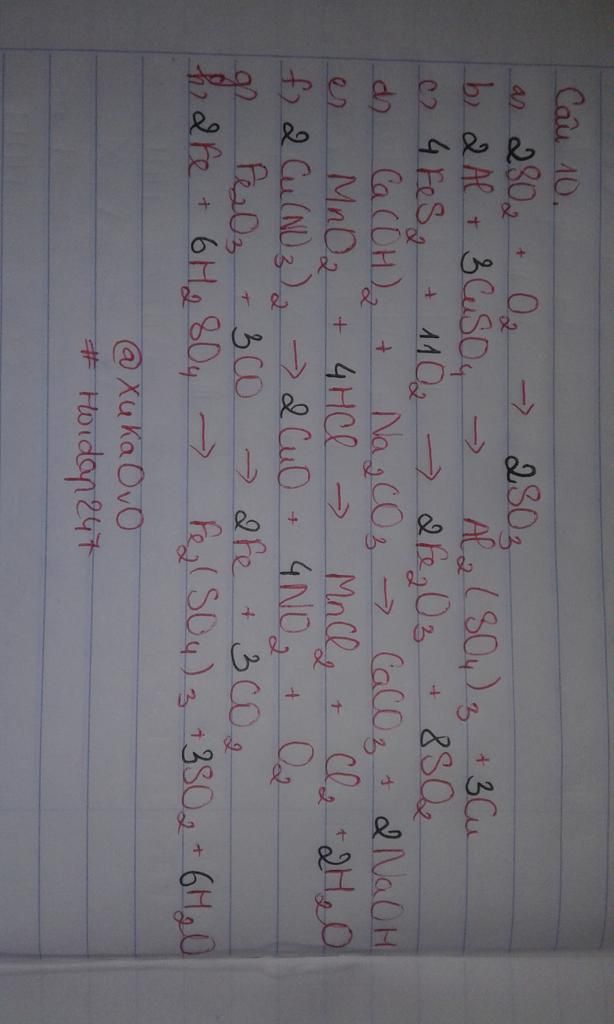 Câu 10.
a, 2SO₂ + O₂ → 2SO₃
b, 2Al + 3CuSO₄ → Al₂(SO₄)₃ + 3Cu
c, 4FeS₂ + 11O₂ → 2Fe₂O₃ + 8SO₂
d, Ca(OH)₂ + Na₂CO₃ → CaCO₃ + 2NaOH
e, MnO₂ + 4HCl → MnCl₂ + Cl₂ + 2H₂O
f, 2Cu(NO₃)₂ → 2CuO + 4NO₂ + O₂
g, Fe₂O₃ + 3CO → 2Fe + 3CO₂
h, 2Fe + 6H₂SO₄ → Fe₂(SO₄)₃ + 3SO₂ + 6H₂O
@XuKaOvO
# Hoidap247